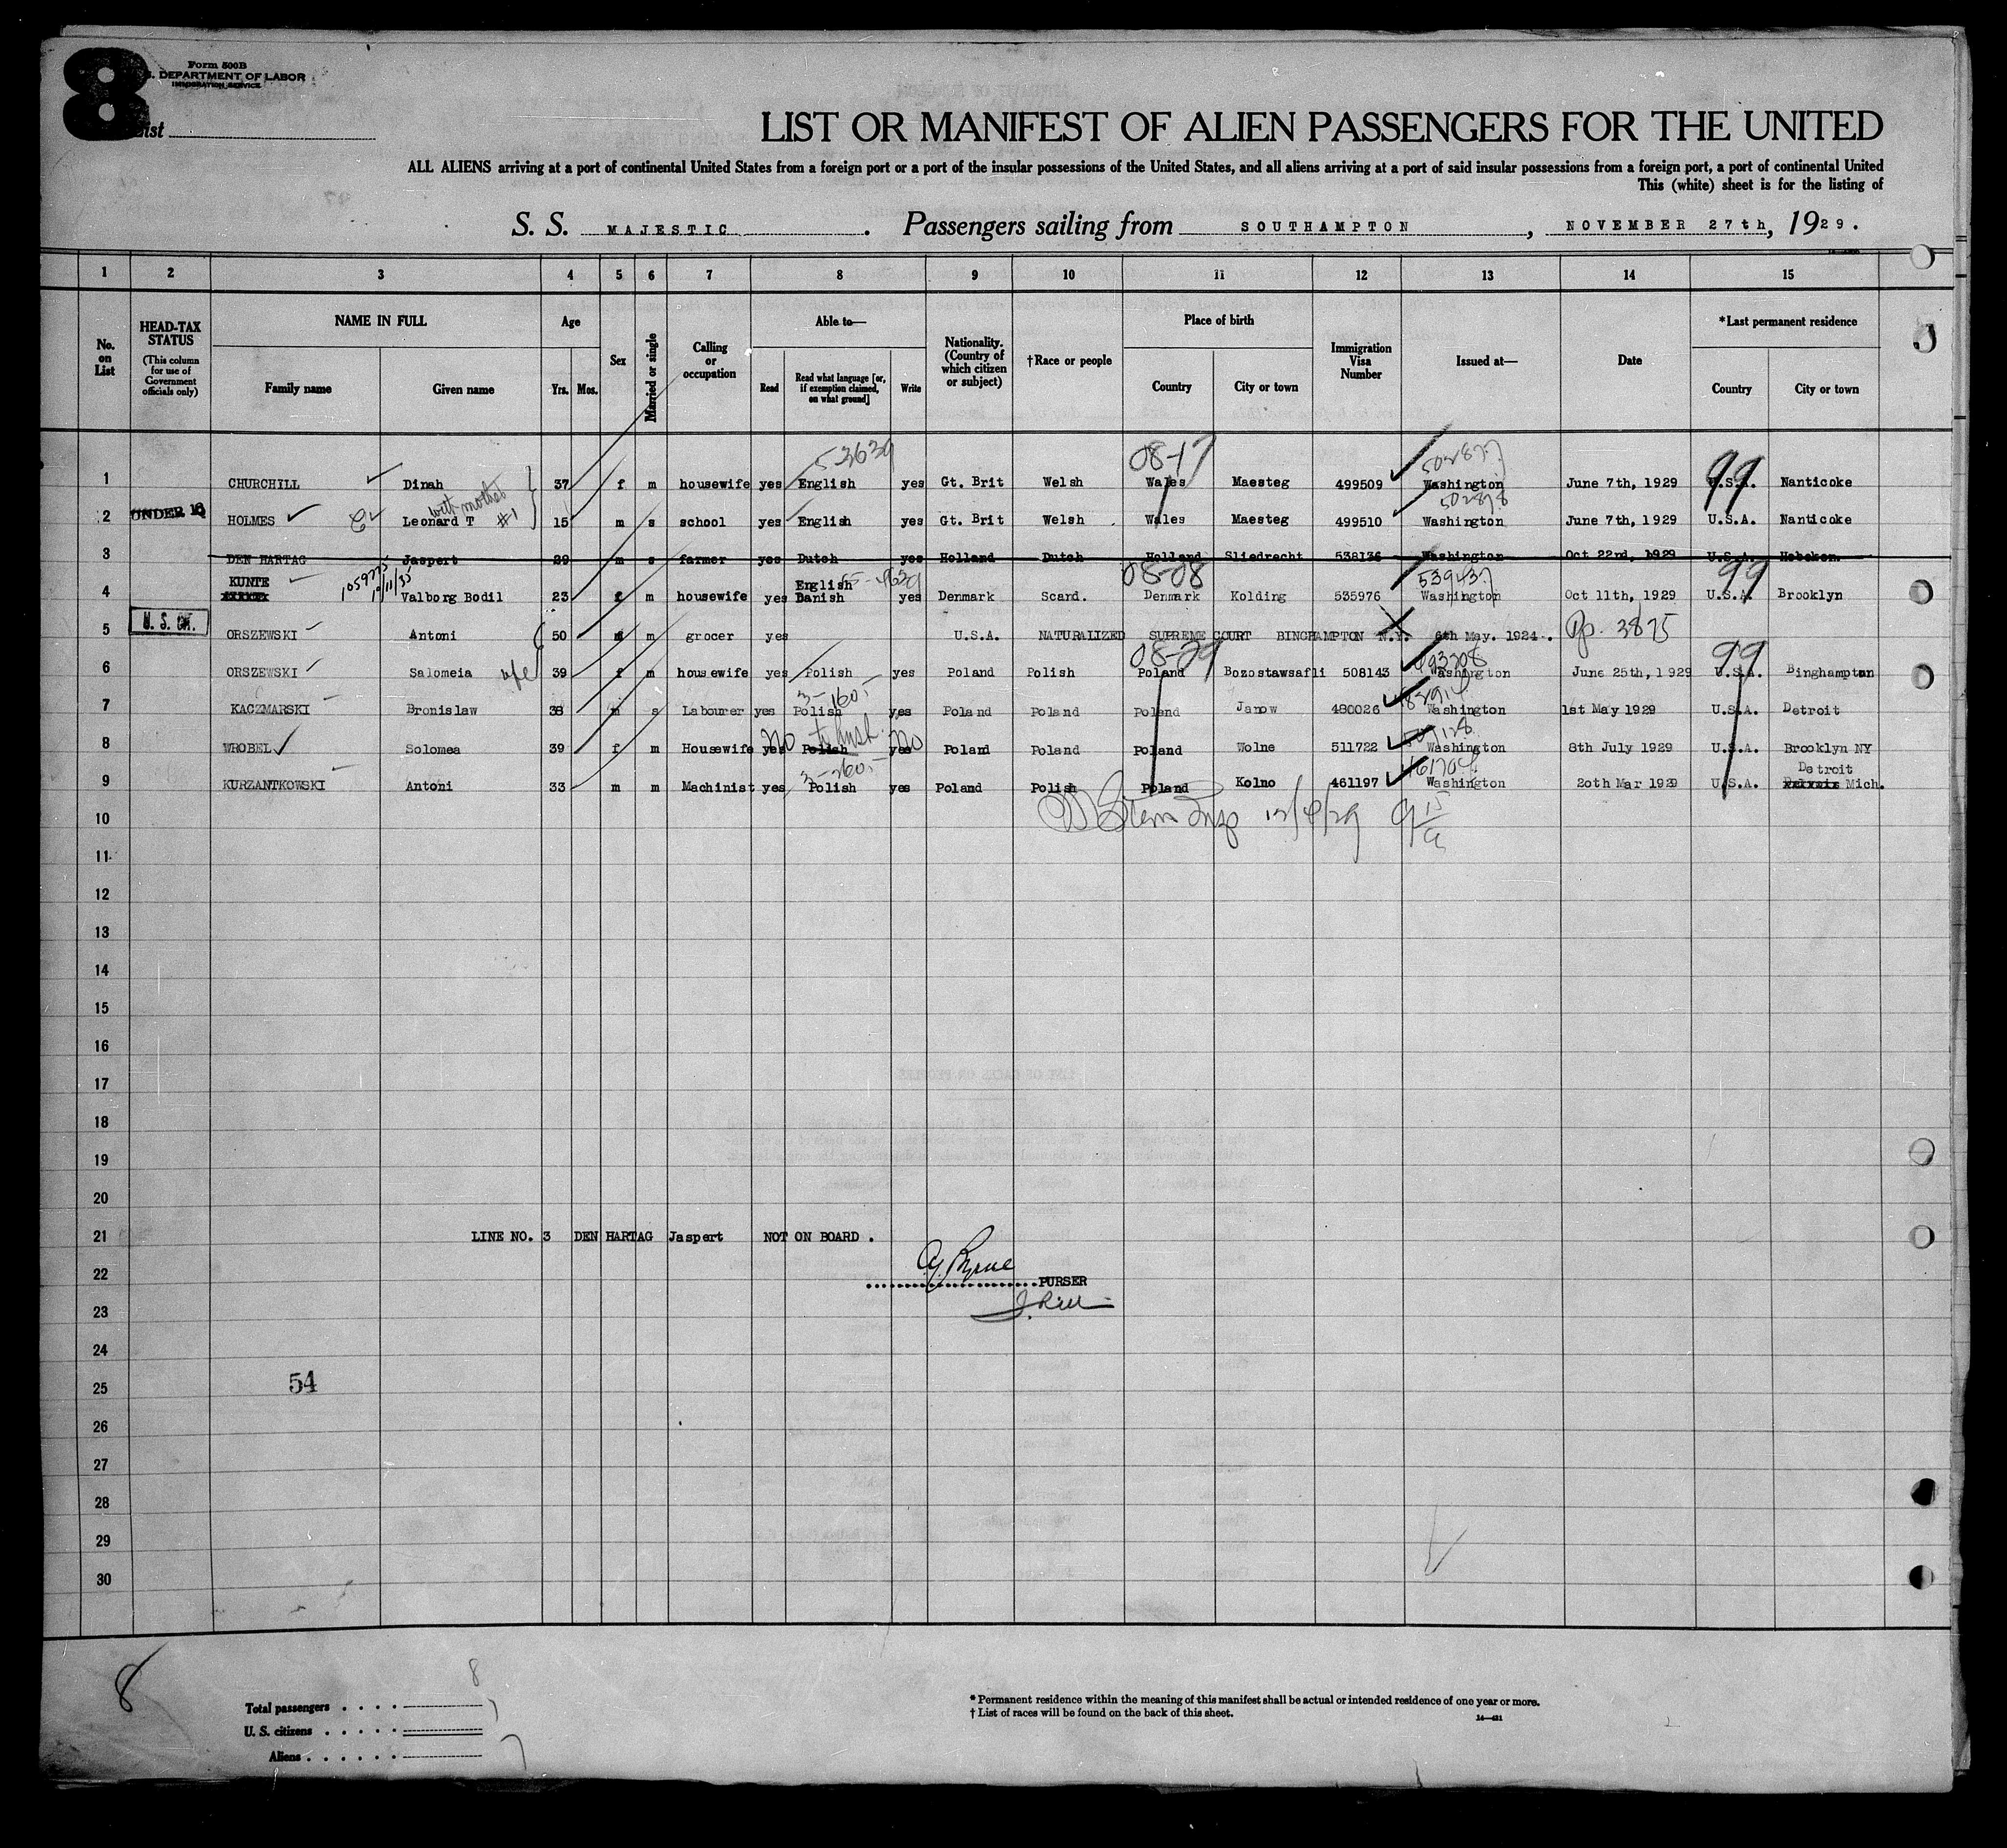 8
Form 500B
U. S. DEPARTMENT OF LABOR
IMMIGRATION SERVICE
List
LIST OR MANIFEST OF ALIEN PASSENGERS FOR THE UNITED
ALL ALIENS arriving at a port of continental United States from a foreign port or a port of the insular possessions of the United States, and all aliens arriving at a port of said insular possessions from a foreign port, a port of continental United
This (white) sheet is for the listing of
S. S. MAJESTIC . Passengers sailing from SOUTHAMPTON , NOVEMBER 27th, 1929.
1 2 3 4 5 6 7 8 9 10 11 12 13 14 15
No. on List
HEAD-TAX STATUS
(This column for use of Government officials only)
NAME IN FULL
Family name Given name
Age
Yrs. Mos.
Sex
Married or single
Calling or occupation
Able to—
Read Read what language [or, if exemption claimed, on what ground] Write
Nationality. (Country of which citizen or subject)
†Race or people
Place of birth
Country City or town
Immigration Visa Number
Issued at—
Date
*Last permanent residence
Country City or town
53639 08-17 502877 99
1 CHURCHILL Dinah 37 f m housewife yes English yes Gt. Brit Welsh Wales Maesteg 499509 Washington June 7th, 1929 U.S.A. Nanticoke
with mother #1 502878
2 UNDER 16 HOLMES Leonard T 15 m s school yes English yes Gt. Brit Welsh Wales Maesteg 499510 Washington June 7th, 1929 U.S.A. Nanticoke
3 DEN HARTAG Jaspert 29 m s farmer yes Dutch yes Holland Dutch Holland Sliedrecht 538136 Washington Oct 22nd, 1929 U.S.A. Hoboken.
KUNTE English 08-08 539437 99
4 Valborg Bodil 23 f m housewife yes Danish yes Denmark Scand. Denmark Kolding 535976 Washington Oct 11th, 1929 U.S.A. Brooklyn
5 U. S. CIT. ORSZEWSKI Antoni 50 m m grocer yes U.S.A. NATURALIZED SUPREME COURT BINGHAMPTON N.Y. 6th May. 1924. Pp. 3875
08-29 493208 99
6 ORSZEWSKI Salomeia wife 39 f m housewife yes Polish yes Poland Polish Poland Bozostawsafli 508143 Washington June 25th, 1929 U.S.A. Binghampton
3-160.-
7 KACZMARSKI Bronislaw 38 m s Labourer yes Polish yes Poland Poland Poland Janow 480026 Washington 1st May 1929 U.S.A. Detroit
No No
8 WROBEL Solomea 39 f m Housewife yes Polish yes Poland Poland Poland Wolne 511722 Washington 8th July 1929 U.S.A. Brooklyn NY
3-260.- 461704 Detroit
9 KURZANTKOWSKI Antoni 33 m m Machinist yes Polish yes Poland Polish Poland Kolno 461197 Washington 20th Mar 1929 U.S.A. Mich.
10 Stern Insp 12/4/29
11
12
13
14
15
16
17
18
19
20
21 LINE NO. 3 DEN HARTAG Jaspert NOT ON BOARD .
22 PURSER
23
24
25 54
26
27
28
29
30
8
8
Total passengers . . . .
U. S. citizens . . . . . 1
Aliens . . . . . . 7
* Permanent residence within the meaning of this manifest shall be actual or intended residence of one year or more.
† List of races will be found on the back of this sheet.
14—421